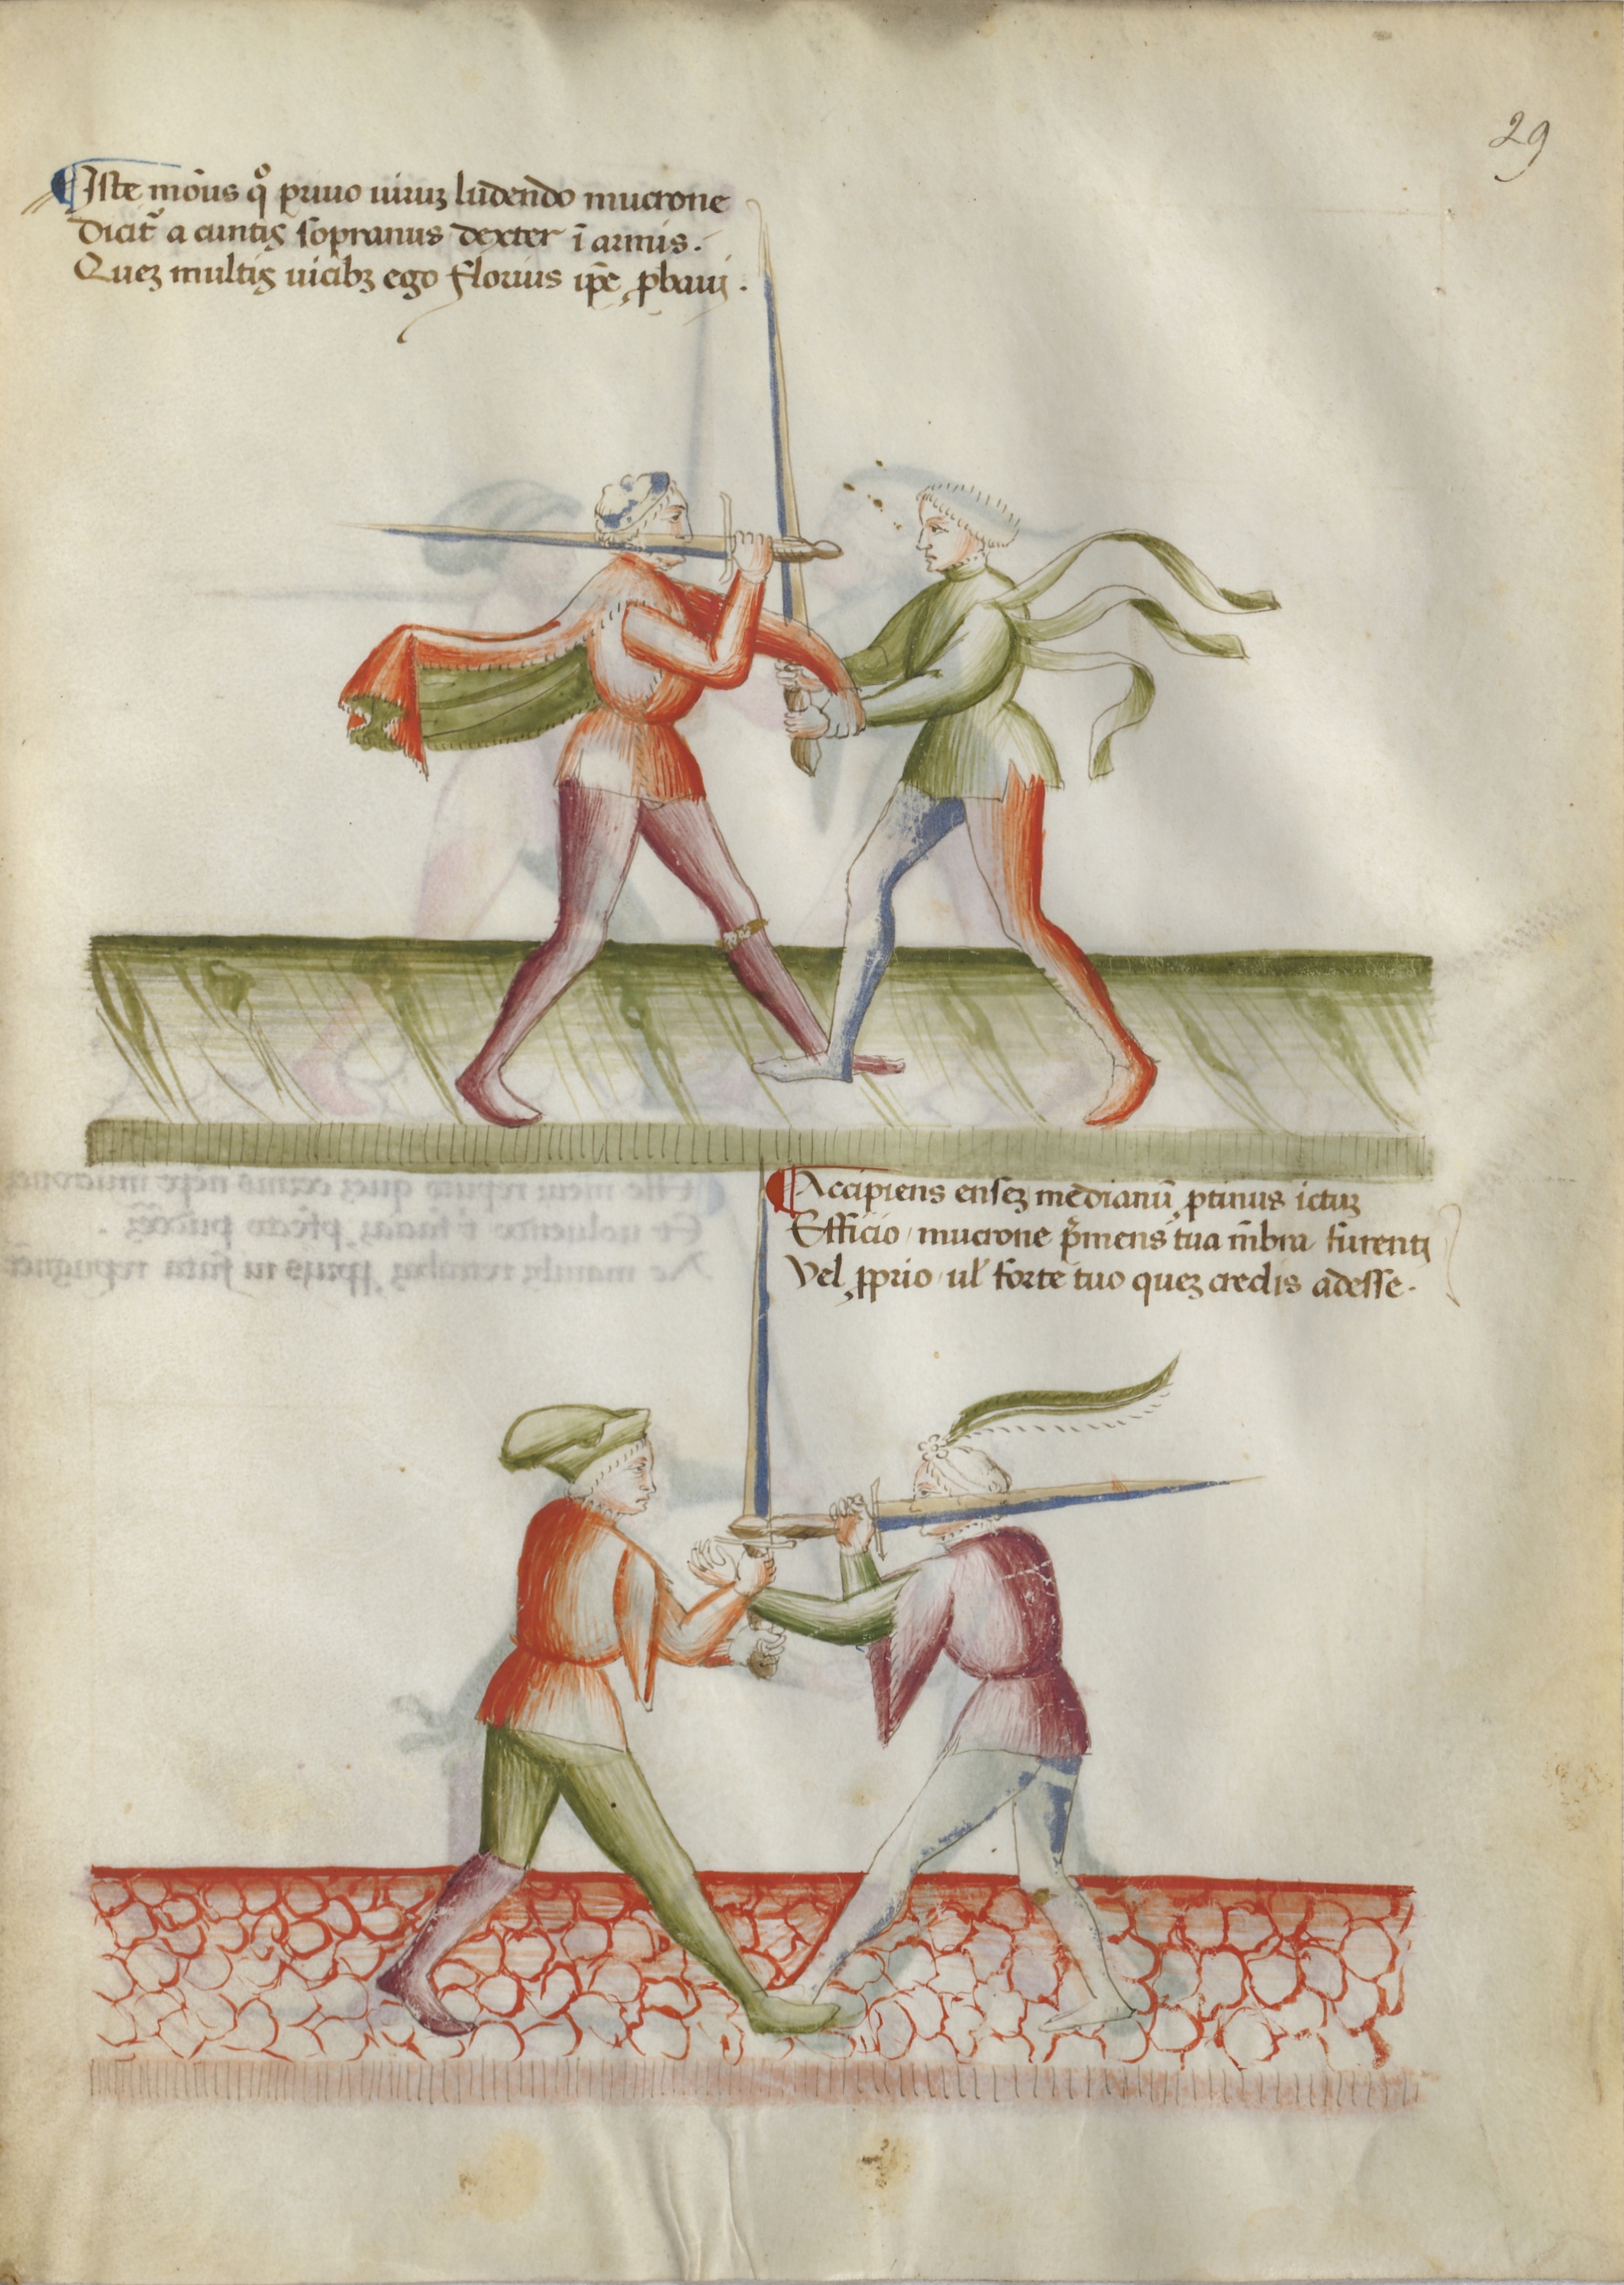 29
Iste mōus qͦ priuo uiruꝫ ludendo mucrone
Dicit᷑ a cuntis sopranus dexter ī armis.
Queꝫ multis uicibꝫ ego florius ip̄e ꝓbaui.
Accipiens enseꝫ medianū ꝓtinus ictuꝫ
Efficio / mucrone p̄mens tua m̄bra furenti
Vel ꝓprio ul᷑ forte tuo queꝫ credis adesse.